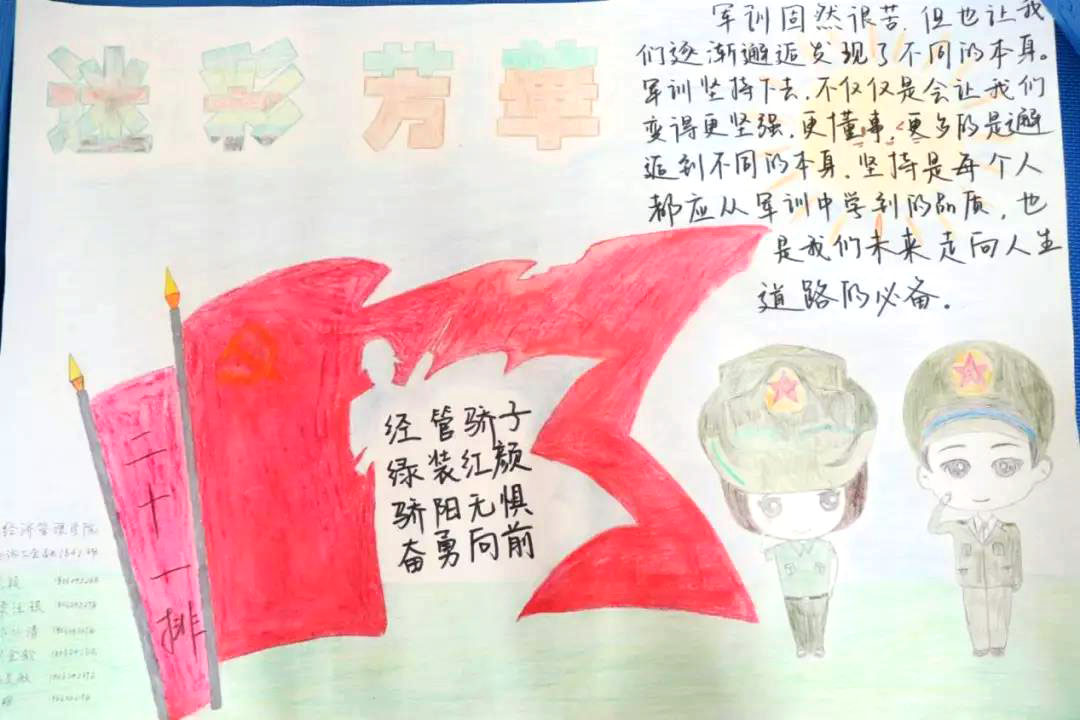 迷彩芳華
军训固然很苦，但也让我
们逐渐邂逅发现了不同的本身。
军训坚持下去，不仅仅是会让我们
变得更坚强，更懂事，更多的是邂
逅到不同的本身，坚持是每个人
都应从军训中学到的品质，也
是我们未来走向人生
道路的必备。
经管骄子
绿装红颜
骄阳无惧
奋勇向前
二十一排
经济管理学院